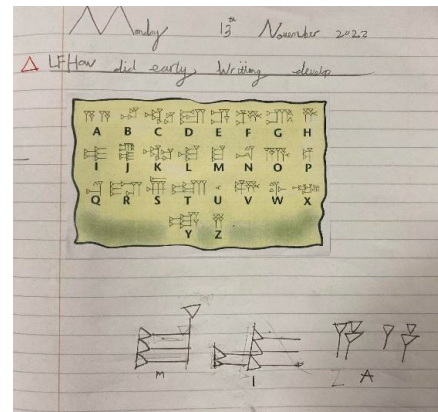 Monday 13th November 2022
LF How did early writting develop
A B C D E F G H
I J K L M N O P
Q R S T U V W X
Y Z
M I A